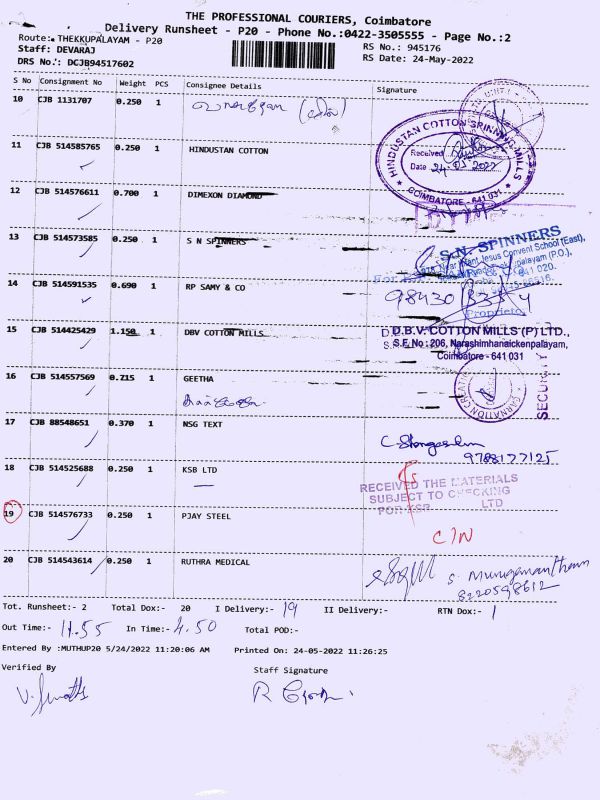 THE PROFESSIONAL COURIERS, Coimbatore
Delivery Runsheet - P20 - Phone No.:0422-3505555 - Page No.:2
Route: THEKKUPALAYAM - P20
RS No.: 945176
Staff: DEVARAJ
RS Date: 24-May-2022
DRS No.: DCJB94517602
S No Consignment No Weight PCS Consignee Details Signature
10 CJB 1131707 0.250 1
11 CJB 514585765 0.250 1 HINDUSTAN COTTON
HINDUSTAN COTTON SPINNING MILLS
Received
Date 24 05 2022
COIMBATORE - 641 031
12 CJB 514576611 0.700 1 DIMEXON DIAMOND
13 CJB 514573585 0.250 1 S N SPINNERS
S.N. SPINNERS
Jesus Convent School (East),
14 CJB 514591535 0.690 1 RP SAMY & CO
15 CJB 514425429 1.150 1 DBV COTTON MILLS
D.B.V. COTTON MILLS (P) LTD.,
S.F. No: 206, Narashimhanaickenpalayam,
Coimbatore - 641 031
16 CJB 514557569 0.715 1 GEETHA
CARNATION CREATI
SECURITY
17 CJB 88548651 0.370 1 NSG TEXT
9788127125
18 CJB 514525688 0.250 1 KSB LTD
RECEIVED THE MATERIALS
SUBJECT TO CHECKING
FOR KSB LTD
19 CJB 514576733 0.250 1 PJAY STEEL
C/N
20 CJB 514543614 0.250 1 RUTHRA MEDICAL
S. Muruganantham
8220598612
Tot. Runsheet:- 2 Total Dox:- 20 I Delivery:- 19 II Delivery:- RTN Dox:- 1
Out Time:- 11.55 In Time:- 4.50 Total POD:-
Entered By :MUTHUP20 5/24/2022 11:20:06 AM Printed On: 24-05-2022 11:26:25
Verified By Staff Signature